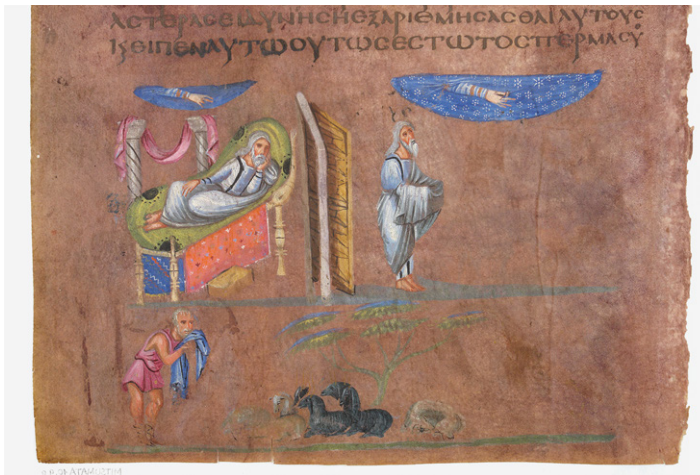 ΑϹΤΕΡΑϹΕΙΔΥΝΗϹΗΕΞΑΡΙΘΜΗϹΑϹΘΑΙΑΥΤΟΥϹ
ΚΕΙΠΕΝΑΥΤΩΟΥΤΩϹΕϹΤΩΤΟϹΠΕΡΜΑϹΥ